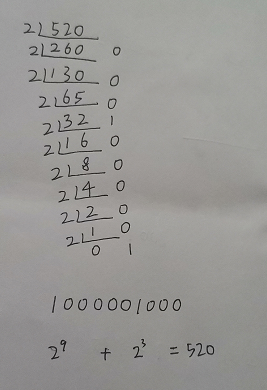 2 520
2 260 0
2 130 0
2 65 0
2 32 1
2 16 0
2 8 0
2 4 0
2 2 0
2 1 0
0 1
1000001000
2⁹ + 2³ = 520